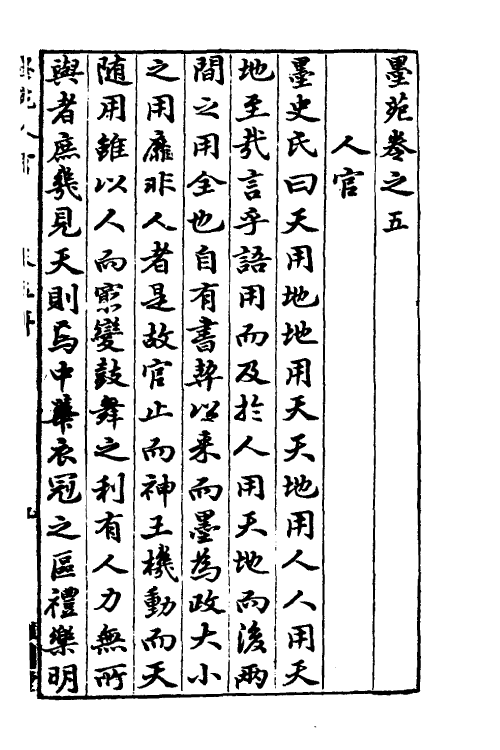 墨苑卷之五
人官
墨史氏曰天用地地用天天地用人人用天
地至哉言乎語用而及於人用天地而後兩
間之用全也自有書契以来而墨為政大小
之用靡非人者是故官止而神王機動而天
随用雖以人而窮變鼓舞之利有人力無所
與者庶幾見天則焉中華衣冠之區禮樂明